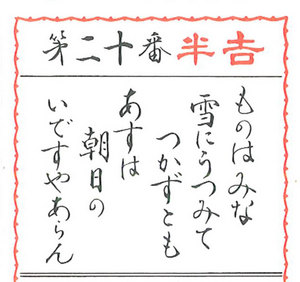 第二十番 半吉
ものはみな
雪にうつみて
つかずとも
あすは
朝日の
いですやあらん